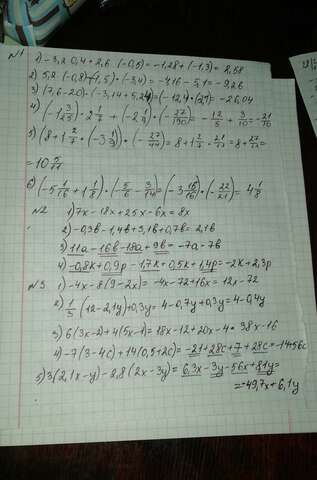 №1 1) -3,2 · 0,4 + 2,6 · (-0,5) = -1,28 + (-1,3) = 2,58
2) 5,2 · (-0,8) + 1,5) · (-3,4) = -4,16 - 5,1 = -9,26
3) (7,6 - 20) · (-3,14 + 5,24) = (-12,4) · (2,1) = -26,04
4) (-1 3/25) · 2 1/7 + (-2 1/9) · (-27/190) = -12/5 + 3/10 = -21/10
5) (8 + 1 2/7 · (-3 1/3) · (-27/44) = 8 + 1 2/7 · 21/22 = 8 + 27/22 =
= 10 5/22
6) (-5 1/16 + 1 1/8) · (5/6 - 3/14) = (-3 15/16) · (-22/21) = 4 1/8
№2 1) 7x - 18x + 25x - 6x = 8x
2) -0,3в - 1,4в + 3,1в + 0,7в = 2,1в
3) 11a - 16в - 18a + 9в = -7a - 7в
4) -0,8k + 0,9p - 1,7k + 0,5k + 1,4p = -2k + 2,3p
№3 1) -4x - 8(9 - 2x) = -4x - 72 + 16x = 12x - 72
2) 1/3 (12 - 2,1y) + 0,3y = 4 - 0,7y + 0,3y = 4 - 0,4y
3) 6(3x - 2) + 4(5x - 1) = 18x - 12 + 20x - 4 = 38x - 16
4) -7(3 - 4c) + 14(0,5 + 2c) = -21 + 28c + 7 + 28c = -14 + 56c
5) 3(2,1x - y) - 2,8(2x - 3y) = 6,3x - 3y - 56x + 8,1y =
= -49,7x + 6,1y